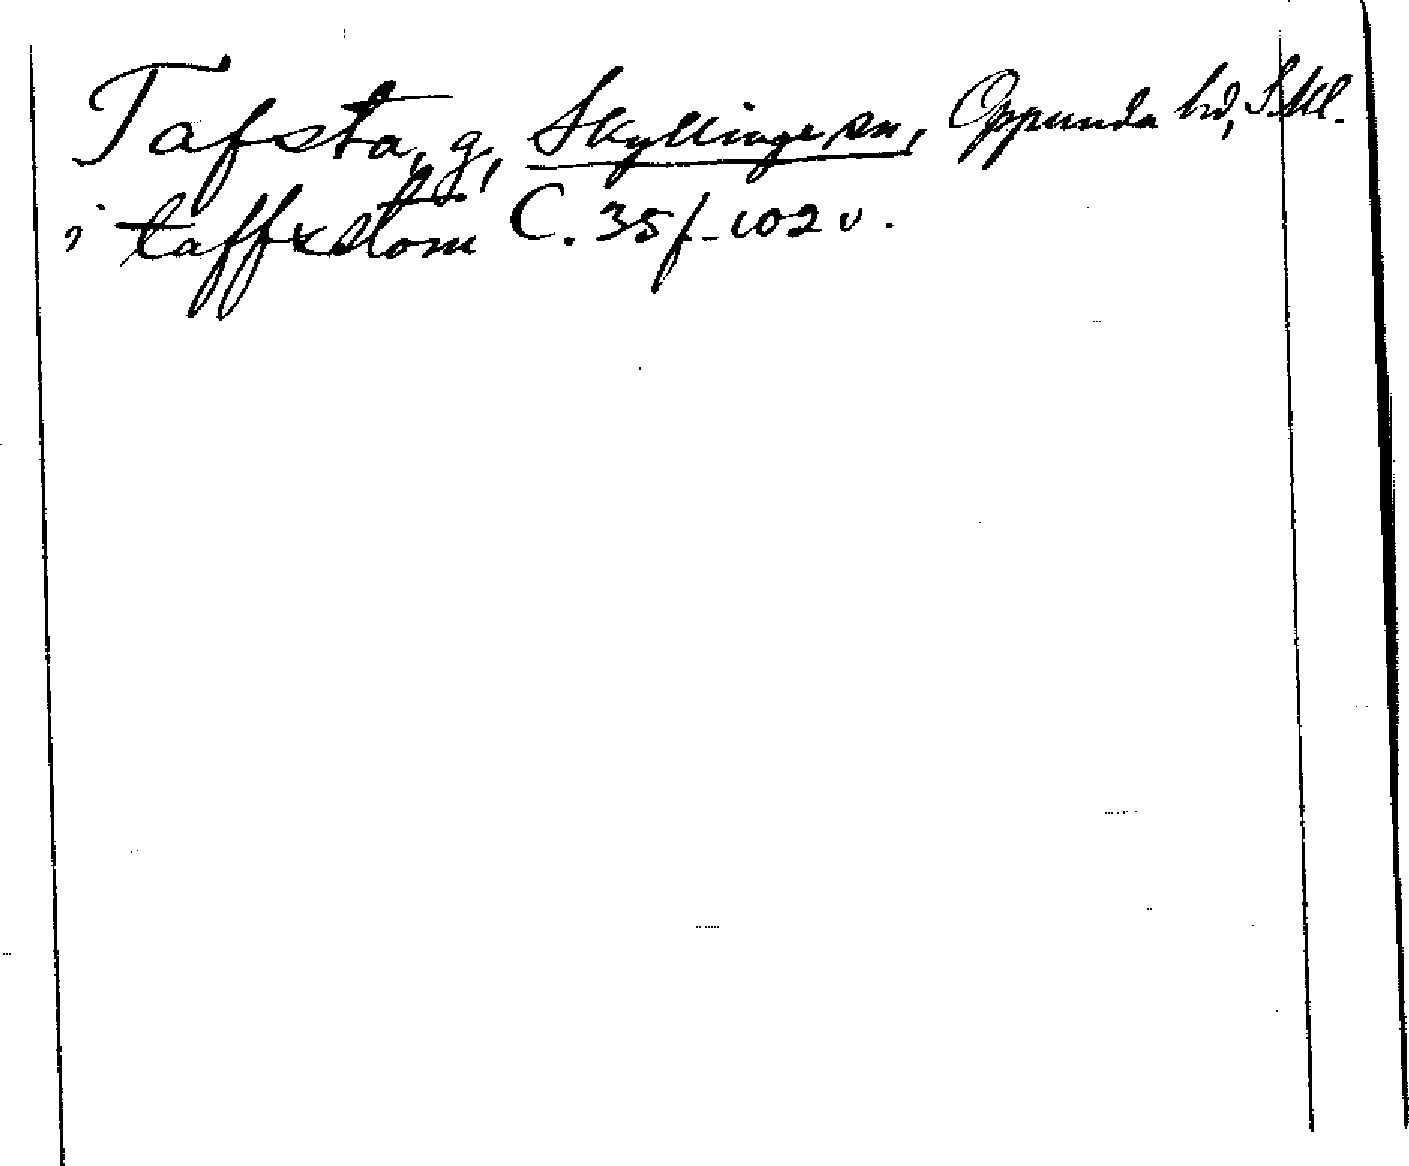 Tafsta, g, Skyllinge sn, Oppunda hd, S.Ml.
i taffxstom C. 35 f. 102 v.